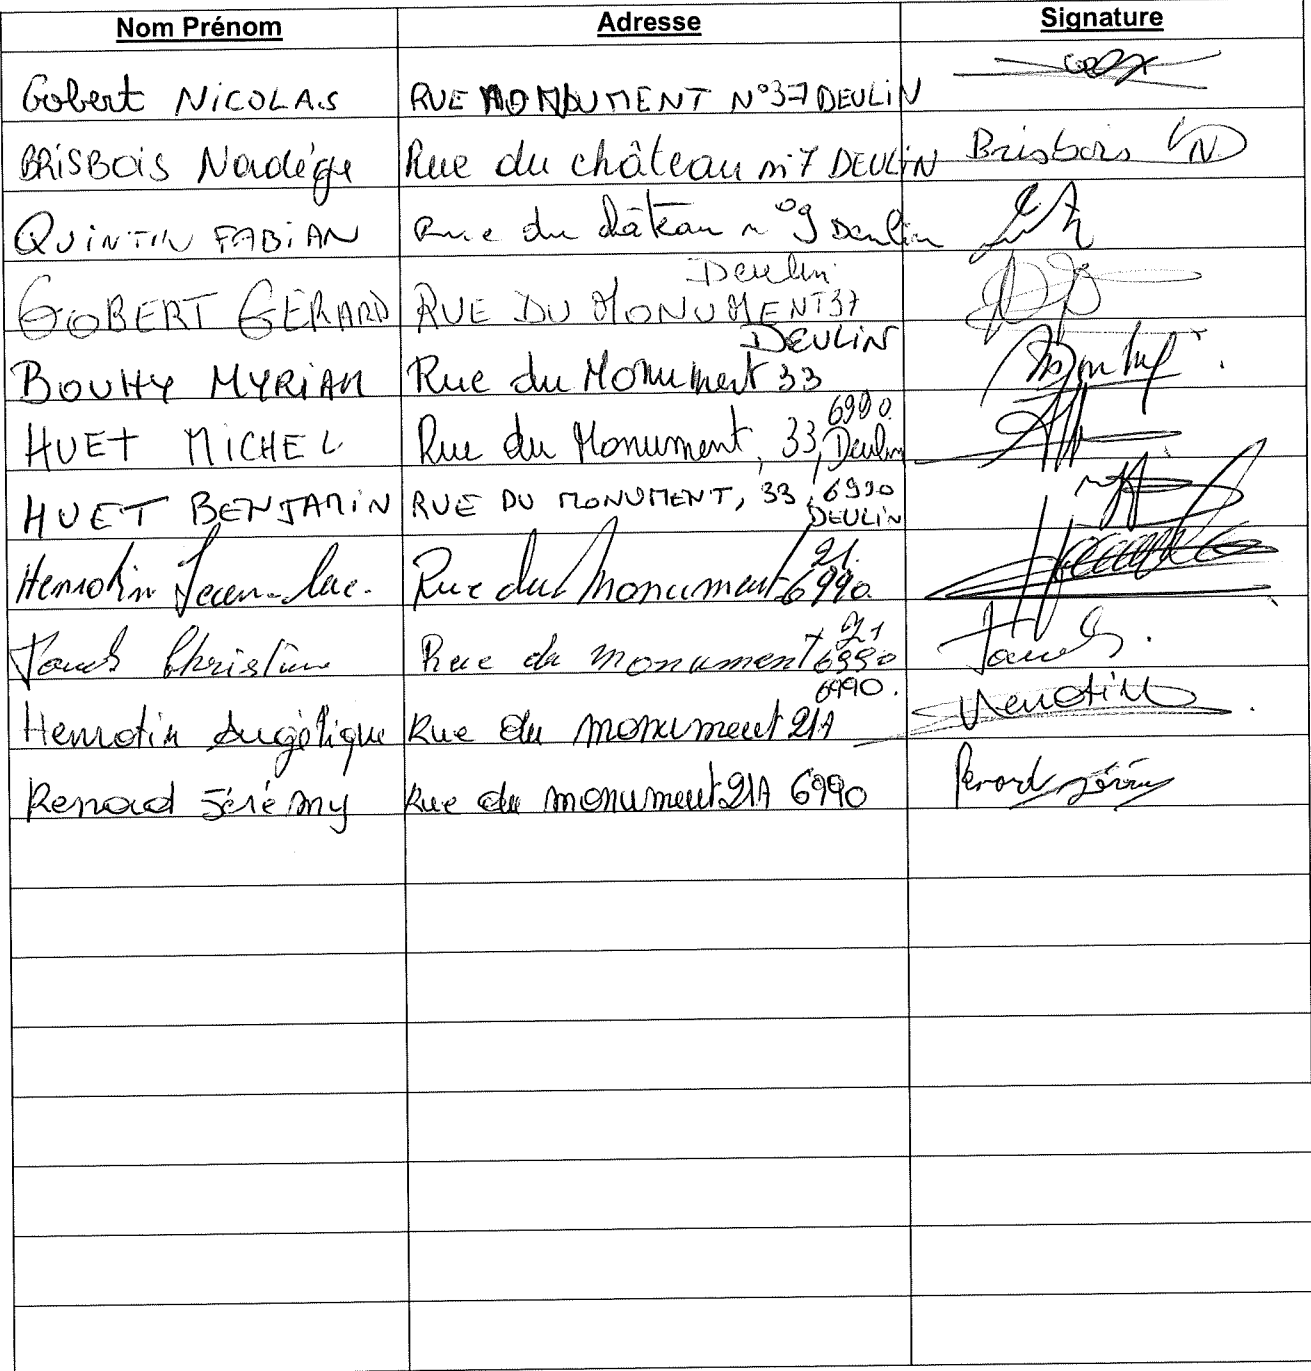 Nom Prénom Adresse Signature
Gobert NICOLAS RUE MONUMENT N°37 DEULIN
BRISBOIS Nadège Rue du château n°7 DEULIN Brisbois N
QUINTIN FABIAN Rue du château n°9 Deulin
Deulin
GOBERT GÉRARD RUE DU MONUMENT 37
DEULIN
BOUHY MYRIAM Rue du Monument 33
6990
HUET MICHEL Rue du Monument, 33, Deulin
HUET BENJAMIN RUE DU MONUMENT, 33, 6990
DEULIN
21.
Henrotin Jean-Luc. Rue du Monument 6990
21
Christine Rue du monument 6990
6990.
Henrotin Angélique Rue du monument 21A Henrotin
Renard Jérémy Rue du monument 21A 6990 Renard Jérémy